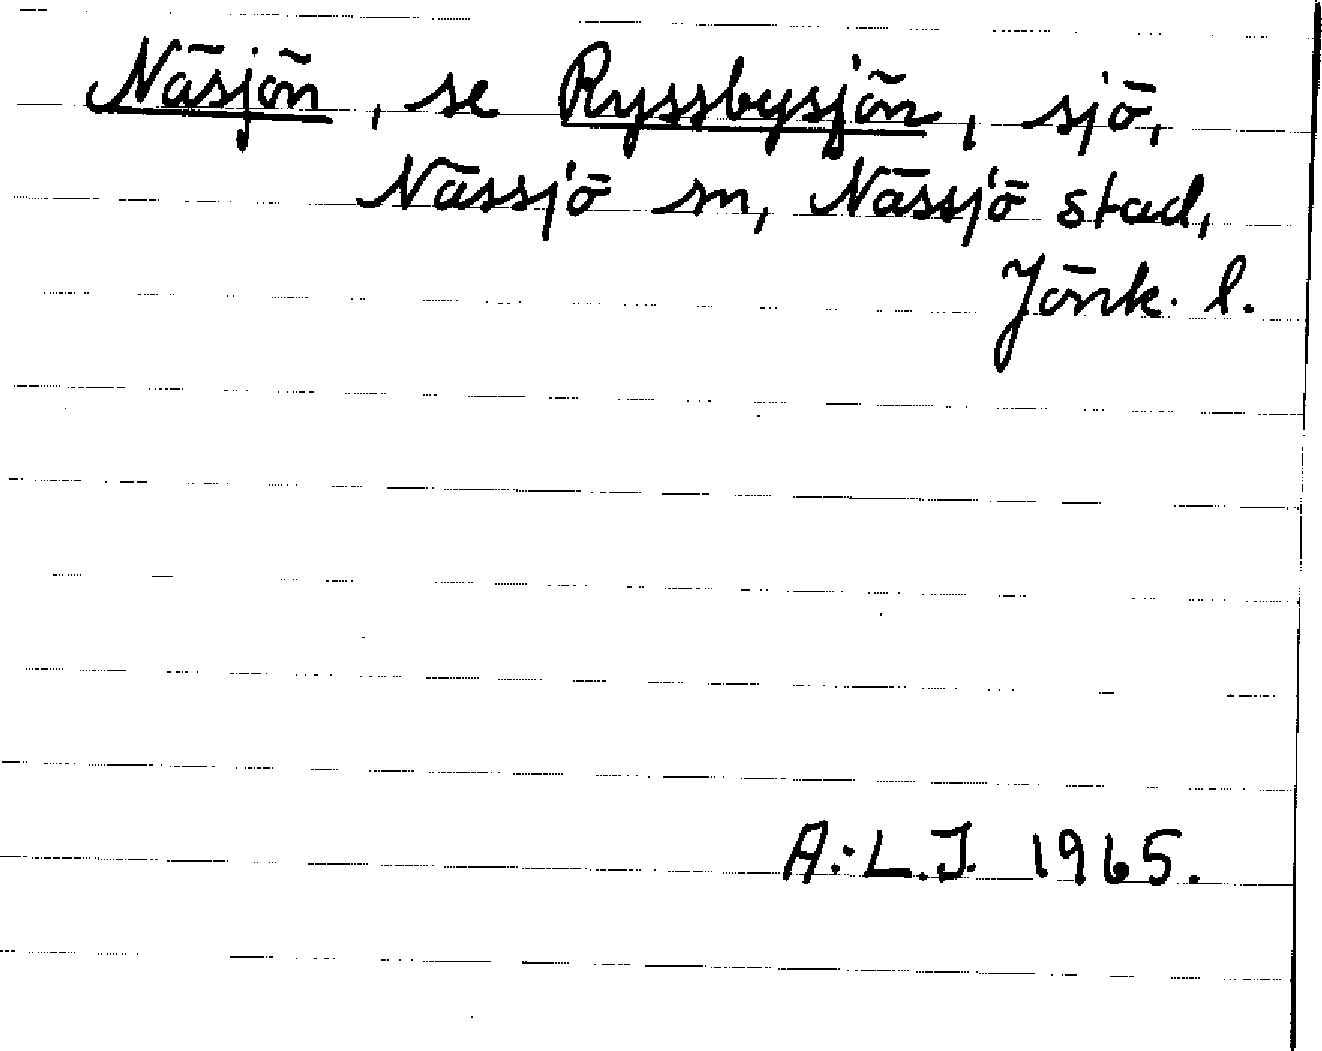 Näsjön, se Ryssbysjön, sjö,
Nässjö sn, Nässjö stad,
Jönk. l.
A.-L.J. 1965.